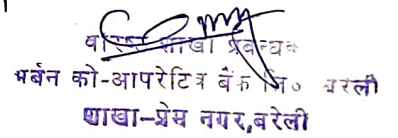 वरिष्ठ शाखा प्रबन्धक
अर्बन को-आपरेटिव बैंक लि० बरेली
शाखा-प्रेम नगर,बरेली